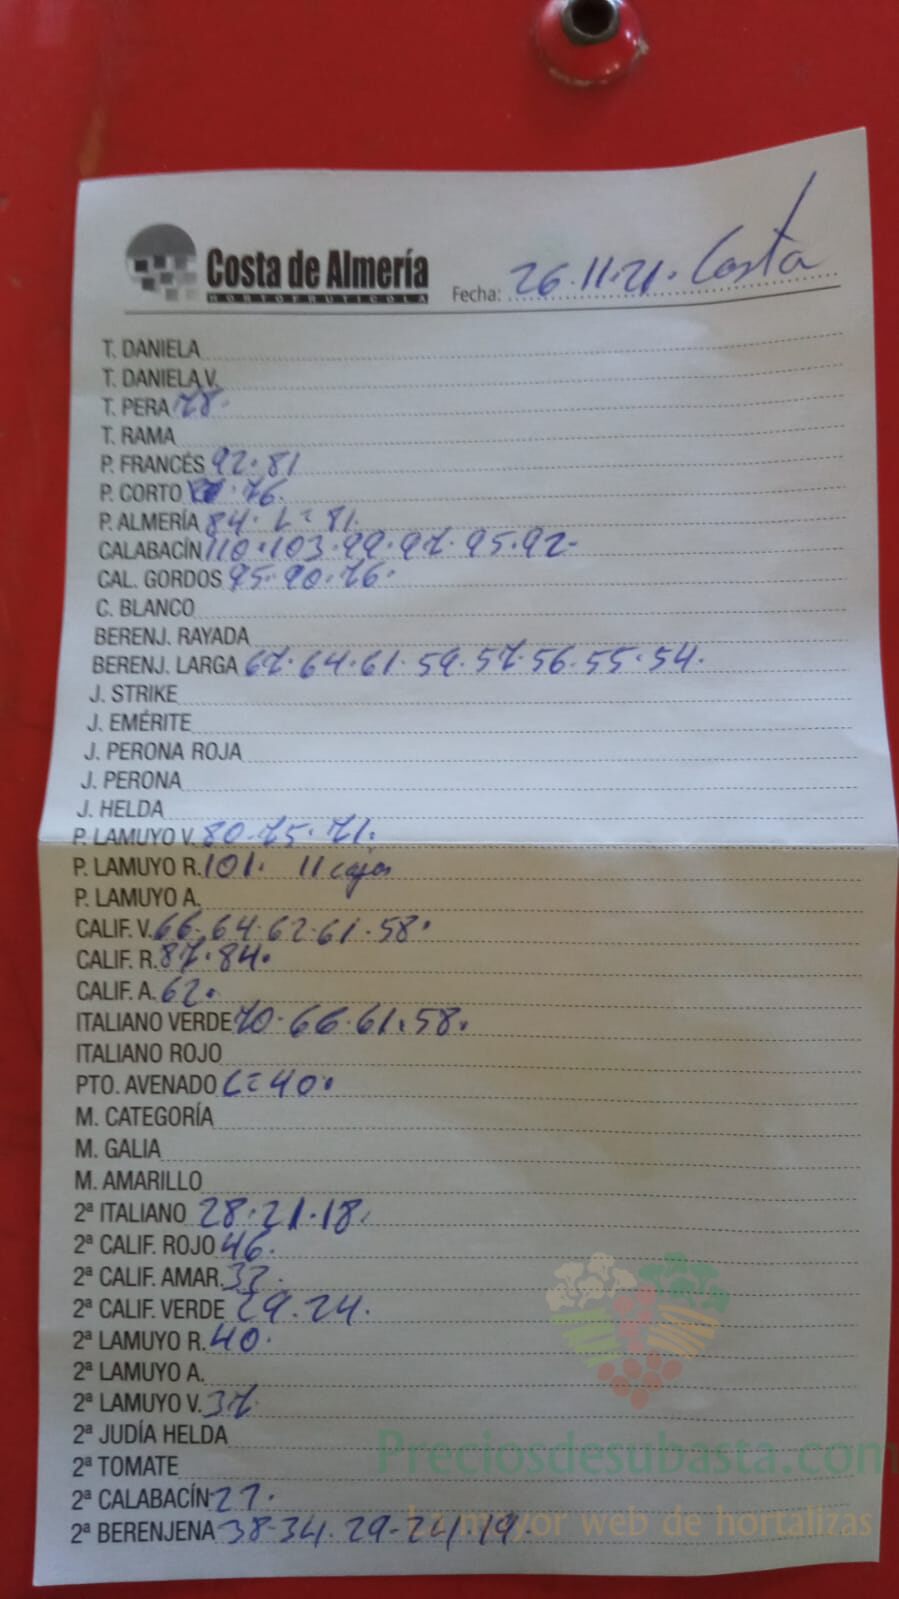 Costa de Almería
HORTOFRUTICOLA
Fecha: 26.11.21. Costa
T. DANIELA
T. DANIELA V.
T. PERA 78.
T. RAMA
P. FRANCÉS 92.81
P. CORTO 76.
P. ALMERÍA 84. L=81.
CALABACÍN 110.103.99.97.95.92-
CAL. GORDOS 95.90.76.
C. BLANCO
BERENJ. RAYADA
BERENJ. LARGA 67.64.61.59.57.56.55.54.
J. STRIKE
J. EMÉRITE
J. PERONA ROJA
J. PERONA
J. HELDA
P. LAMUYO V. 80.75.71.
P. LAMUYO R. 101. 11 cajas
P. LAMUYO A.
CALIF. V. 66.64.62.61.58.
CALIF. R. 87.84.
CALIF. A. 62.
ITALIANO VERDE 70.66.61.58.
ITALIANO ROJO
PTO. AVENADO L=40.
M. CATEGORÍA
M. GALIA
M. AMARILLO
2ª ITALIANO 28.21.18.
2ª CALIF. ROJO 46.
2ª CALIF. AMAR.
2ª CALIF. VERDE 29.24.
2ª LAMUYO R. 40.
2ª LAMUYO A.
2ª LAMUYO V. 37
2ª JUDÍA HELDA
2ª TOMATE
2ª CALABACÍN
2ª BERENJENA 38-34.29-24.19.
Preciosdesubasta.com
La mayor web de hortalizas